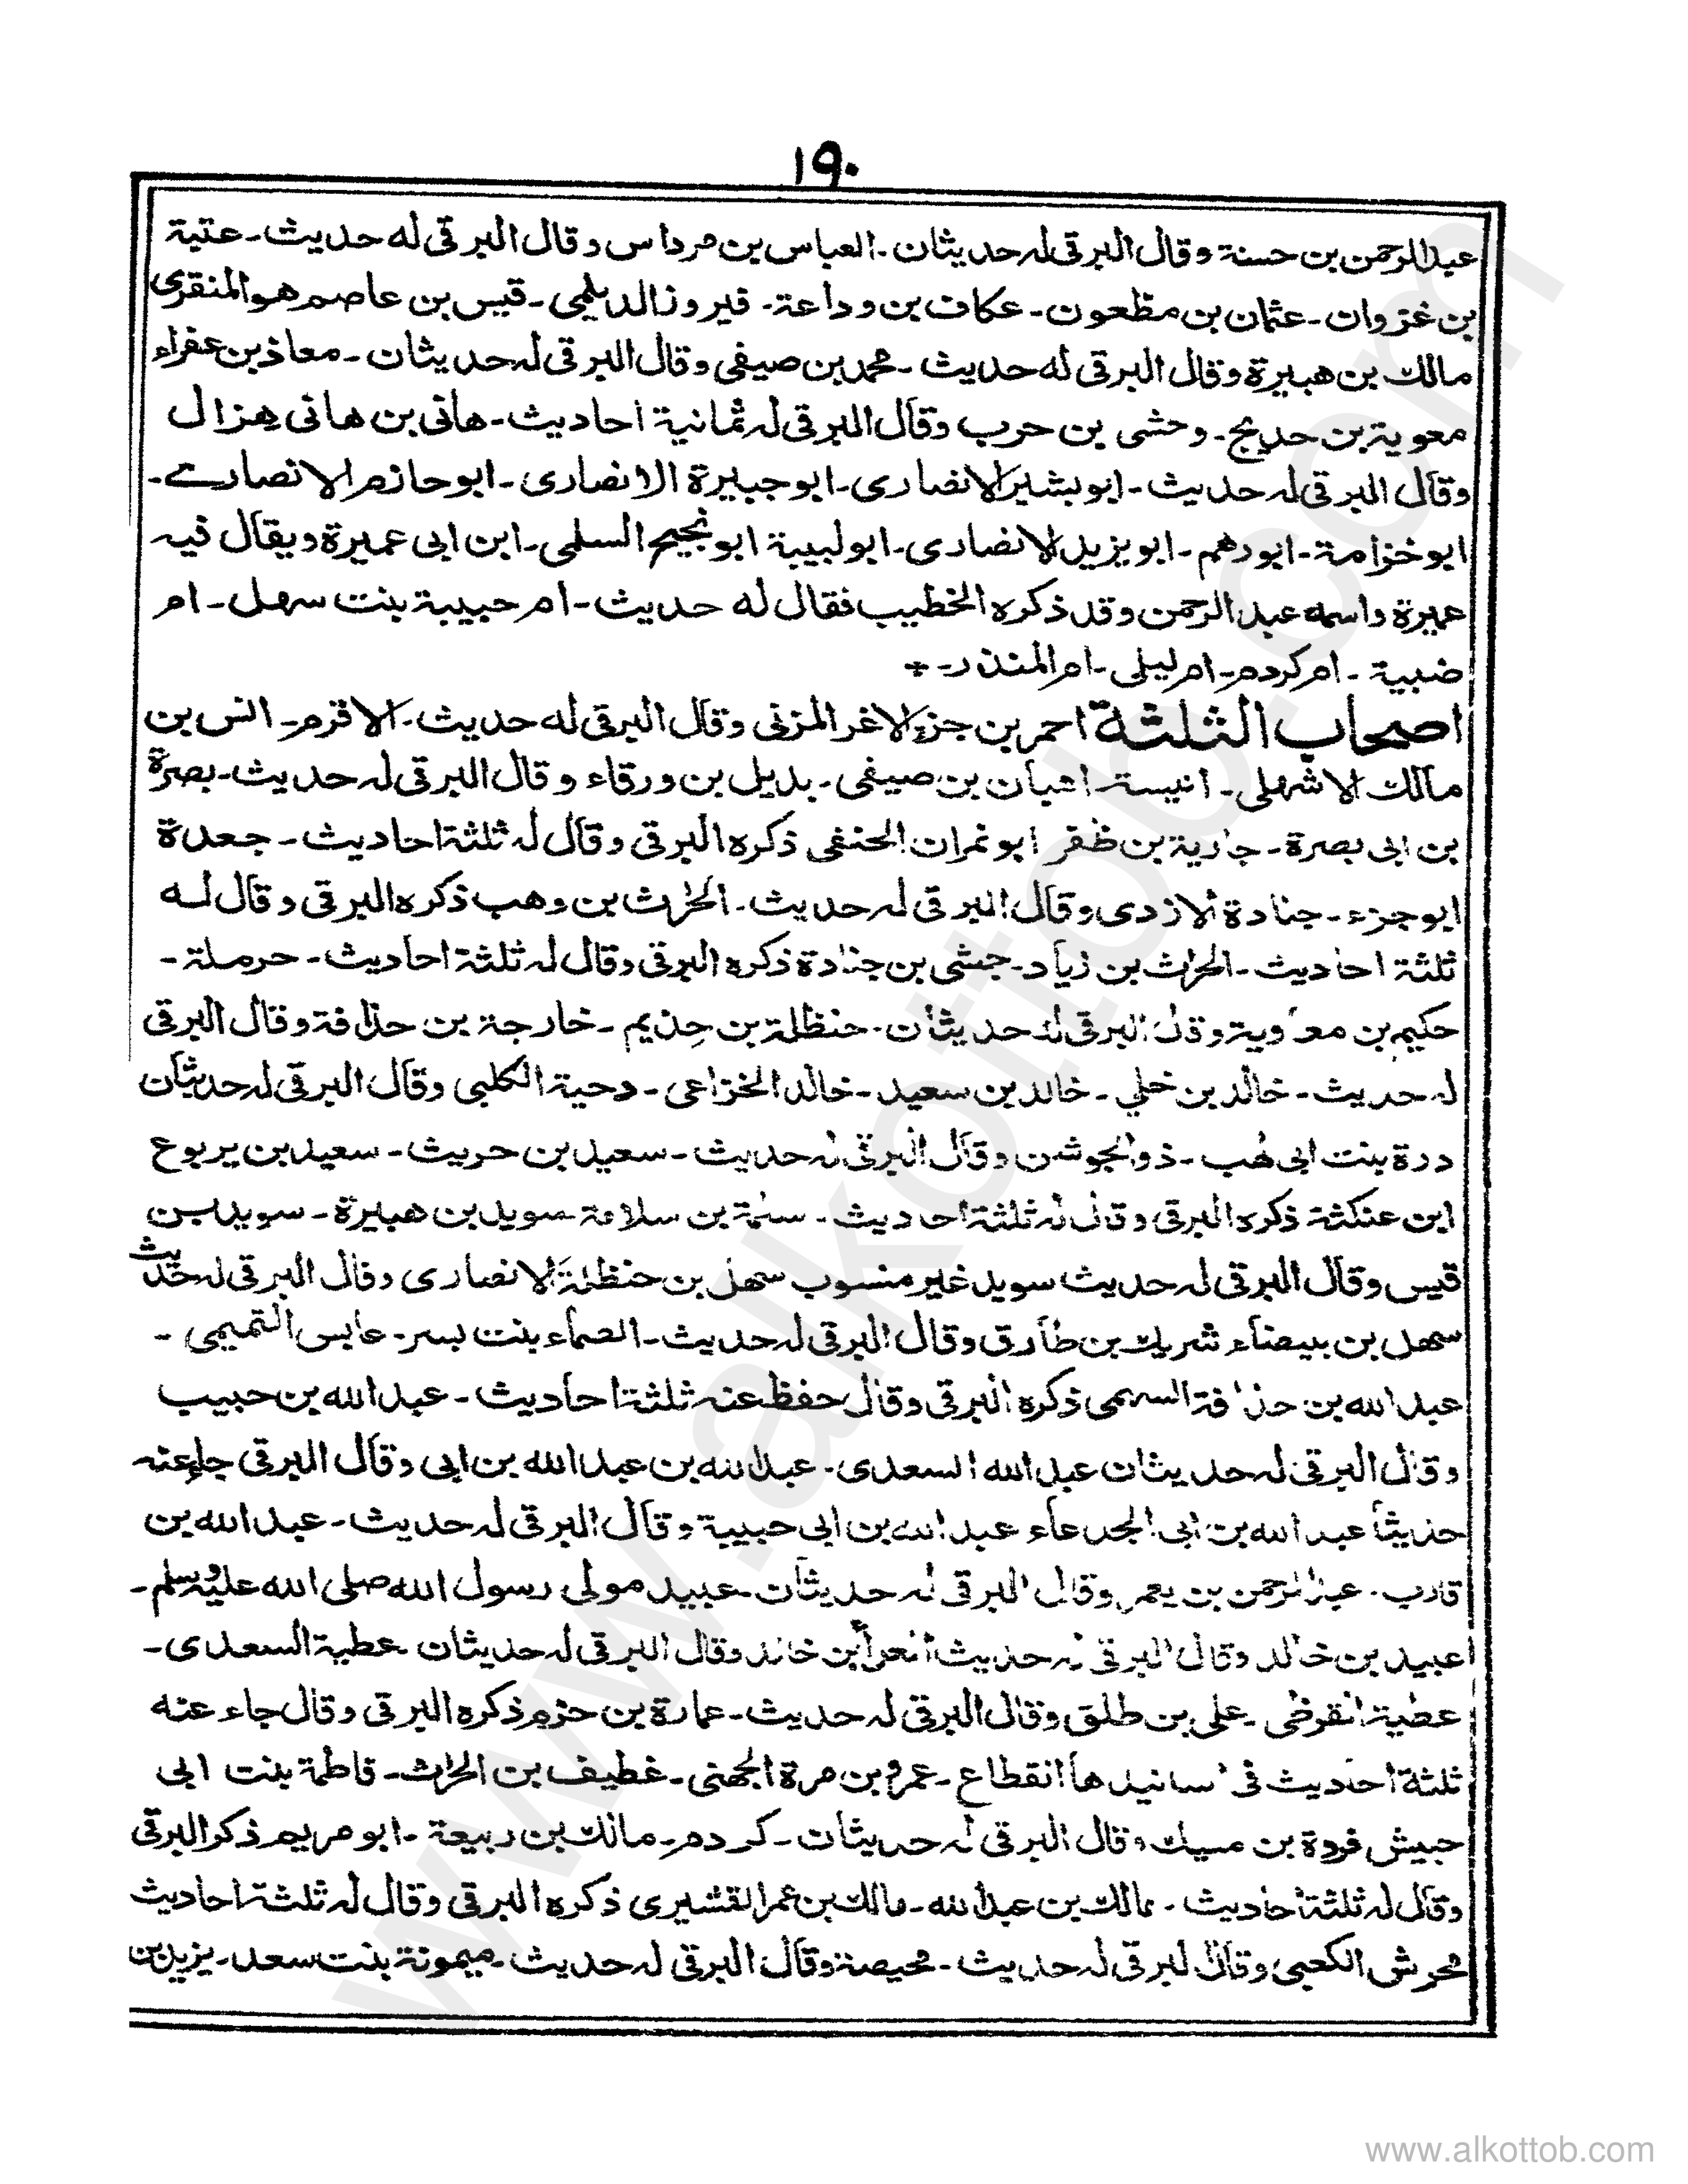 ١٩٠
عبدالرحمن بن حسنة وقال البرقى له حديثان - العباس بن مرداس وقال البرقى له حديث - عتبة
بن غزوان - عثمان بن مظعون - عكاف بن وداعة - فيروز الديلمى - قيس بن عاصم هو المنقرى
مالك بن هبيرة وقال البرقى له حديث - محمد بن صيفى وقال البرقى له حديثان - معاذ بن عفراء
معوية بن حديج - وحشى بن حرب وقال البرقى له ثمانية احاديث - هانى بن هانى هزال
وقال البرقى له حديث - ابو بشير الانصارى - ابو جبيرة الانصارى - ابو حازم الانصارے -
ابو خزامة - ابورهم - ابو يزيد الانصارى - ابو لبيبة ابو نجيح السلمى - ابن ابى عميرة ويقال فيه
عميرة واسمه عبد الرحمن وقد ذكره الخطيب فقال له حديث - ام حبيبة بنت سهل - ام
ضبية - ام كردم - ام ليلى - ام المنذر -
اصحاب الثلثة احمر بن جزء الاغر المزنى وقال البرقى له حديث - الاقرم - انس بن
مالك الاشهلى - انيسة - اهبان بن صيفى - بديل بن ورقاء وقال البرقى له حديث - بصرة
بن ابى بصرة - جارية بن ظفر ابو نمران الحنفى ذكره البرقى وقال له ثلثة احاديث - جعدة
ابو جزء - جنادة الازدى وقال البرقى له حديث - الحارث بن وهب ذكره البرقى وقال له
ثلثة احاديث - الحارث بن زياد - حبشى بن جنادة ذكره البرقى وقال له ثلثة احاديث - حرملة -
حكيم بن معاوية وقال البرقى له حديثان - حنظلة بن حذيم - خارجة بن حذافة وقال البرقى
له حديث - خالد بن خلي - خالد بن سعيد - خالد الخزاعى - دحية الكلبى وقال البرقى له حديثان
درة بنت ابى لهب - ذو الجوشن وقال البرقى له حديث - سعيد بن حريث - سعيد بن يربوع
ابن عنكثة ذكره البرقى وقال له ثلثة احاديث - سلمة بن سلامة - سويد بن هبيرة - سويد بن
قيس وقال البرقى له حديث سويد غير منسوب سهل بن حنظلة الانصارى وقال البرقى له حديث
سهل بن بيضاء شريك بن طارق وقال البرقى له حديث - الصماء بنت بسر - عابس التميمى -
عبد الله بن حذافة السهمى ذكره البرقى وقال حفظ عنه ثلثة احاديث - عبد الله بن حبيب
وقال البرقى له حديثان عبد الله السعدى - عبد الله بن عبد الله بن ابى وقال البرقى جاء عنه
حديثا عبد الله بن ابى الجدعاء عبد الله بن ابى حبيبة وقال البرقى له حديث - عبد الله بن
قارب - عبد الرحمن بن يعمر وقال البرقى له حديثان - عبيد مولى رسول الله صلى الله عليه وسلم -
عبيد بن خالد وقال البرقى له حديث العداء بن خالد وقال البرقى له حديثان عطية السعدى -
عطية القرظى - على بن طلق وقال البرقى له حديث - عمارة بن حزم ذكره البرقى وقال جاء عنه
ثلثة احاديث فى اسانيدها انقطاع - عمرو بن مرة الجهنى - غطيف بن الحارث - فاطمة بنت ابى
حبيش فروة بن مسيك وقال البرقى له حديثان - كردم - مالك بن ربيعة - ابو مريم ذكر البرقى
وقال له ثلثة احاديث - مالك بن عبد الله - مالك بن عمر القشيرى ذكره البرقى وقال له ثلثة احاديث
محرش الكعبى وقال البرقى له حديث - محيصة وقال البرقى له حديث - ميمونة بنت سعد - يزيد بن
www.alkottob.com
www.alkottob.com